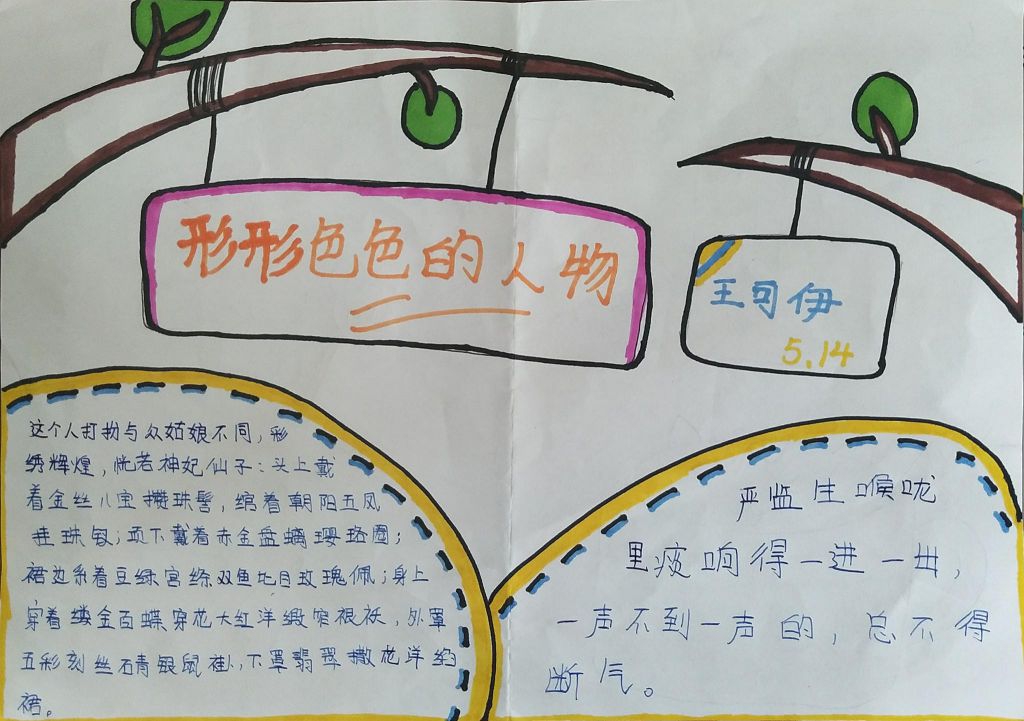 形形色色的人物
王司伊
5.14
这个人打扮与众姑娘不同，彩
绣辉煌，恍若神妃仙子：头上戴
着金丝八宝攒珠髻，绾着朝阳五凤
挂珠钗；项下戴着赤金盘螭璎珞圈；
裙边系着豆绿宫绦双鱼比目玫瑰佩；身上
穿着缕金百蝶穿花大红洋缎窄裉袄，外罩
五彩刻丝石青银鼠褂，下罩翡翠撒花洋绉
裙。
严监生喉咙
里痰响得一进一出，
一声不到一声的，总不得
断气。